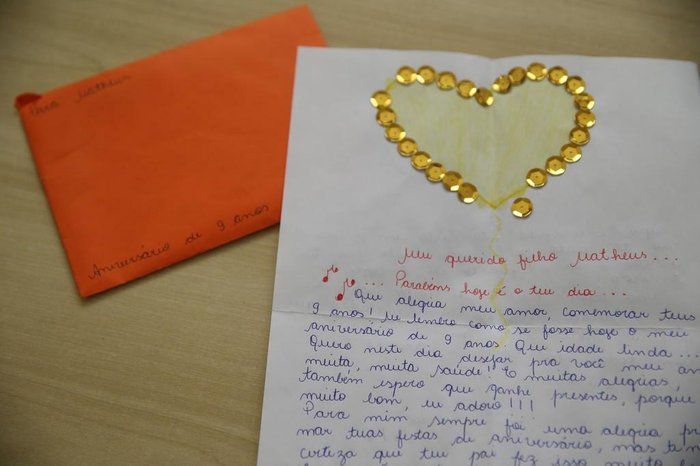 Para Matheus
Aniversário de 9 anos
Meu querido filho Matheus...
... Parabéns hoje é o teu dia...
Que alegria meu amor, comemorar teus
9 anos! Eu lembro como se fosse hoje o meu
aniversário de 9 anos. Que idade linda...
Quero neste dia desejar pra você meu am
muita, muita saúde! E muitas alegrias,
também espero que ganhe presentes, porque
muito bom, eu adoro!!!
Para mim sempre foi uma alegria pr
mar tuas festas de aniversário, mas ten
certeza que teu pai fez isso muito b